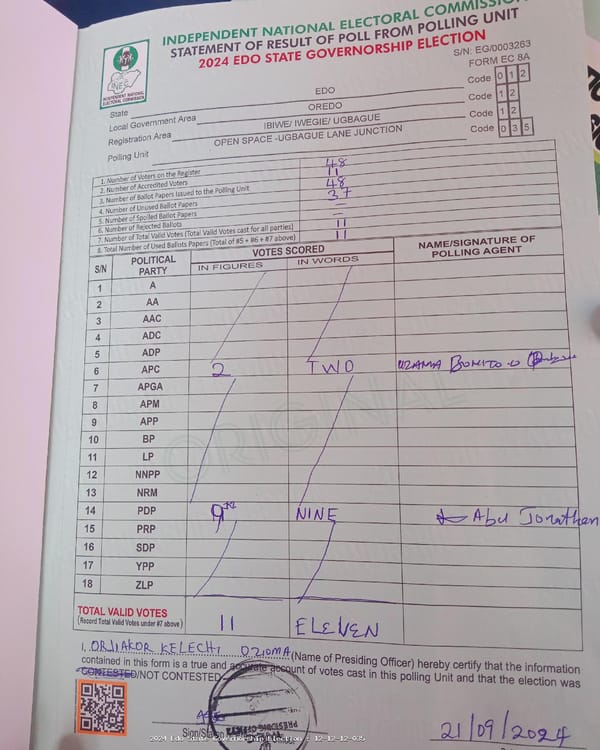 INDEPENDENT NATIONAL ELECTORAL COMMISSION
STATEMENT OF RESULT OF POLL FROM POLLING UNIT
2024 EDO STATE GOVERNORSHIP ELECTION
S/N: EG/0003263
FORM EC 8A
INEC
INDEPENDENT NATIONAL ELECTORAL COMMISSION
State EDO Code 0 1 2
Local Government Area OREDO Code 1 2
Registration Area IBIWE/ IWEGIE/ UGBAGUE Code 1 2
Polling Unit OPEN SPACE -UGBAGUE LANE JUNCTION Code 0 3 5
1. Number of Voters on the Register 48
2. Number of Accredited Voters 11
3. Number of Ballot Papers Issued to the Polling Unit 48
4. Number of Unused Ballot Papers 37
5. Number of Spoiled Ballot Papers –
6. Number of Rejected Ballots –
7. Number of Total Valid Votes (Total Valid Votes cast for all parties) 11
8. Total Number of Used Ballots Papers (Total of #5 + #6 + #7 above) 11
S/N POLITICAL PARTY VOTES SCORED NAME/SIGNATURE OF POLLING AGENT
IN FIGURES IN WORDS
1 A
2 AA
3 AAC
4 ADC
5 ADP
6 APC 2 TWO UZAMA BONITO O
7 APGA
8 APM
9 APP
10 BP
11 LP
12 NNPP
13 NRM
14 PDP 9 NINE Abu Jonathan
15 PRP
16 SDP
17 YPP
18 ZLP
ORIGINAL
TOTAL VALID VOTES 11 ELEVEN
(Record Total Valid Votes under #7 above)
I, ORJIAKOR KELECHI OZIOMA (Name of Presiding Officer) hereby certify that the information
contained in this form is a true and accurate account of votes cast in this polling Unit and that the election was
CONTESTED/NOT CONTESTED
Sign/Stamp
PRESIDING
21/09/2024
2024 Edo State Governorship Election - 12-12-12-035